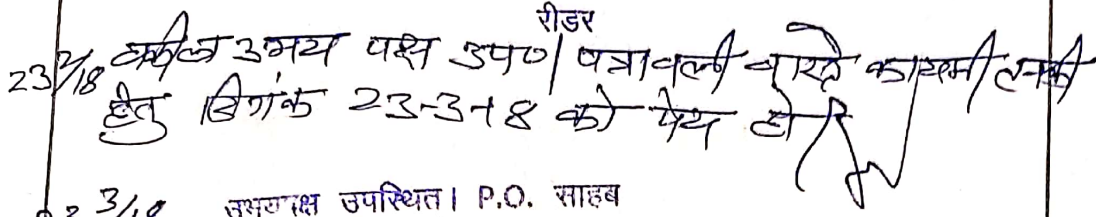 रीडर
23/2/18 वकील उभय पक्ष उप०। पत्रावली वास्ते कायमी तनकी
हेतु दिनांक 23-3-18 को पेश हो।
3/18 उभयपक्ष उपस्थित। P.O. साहब